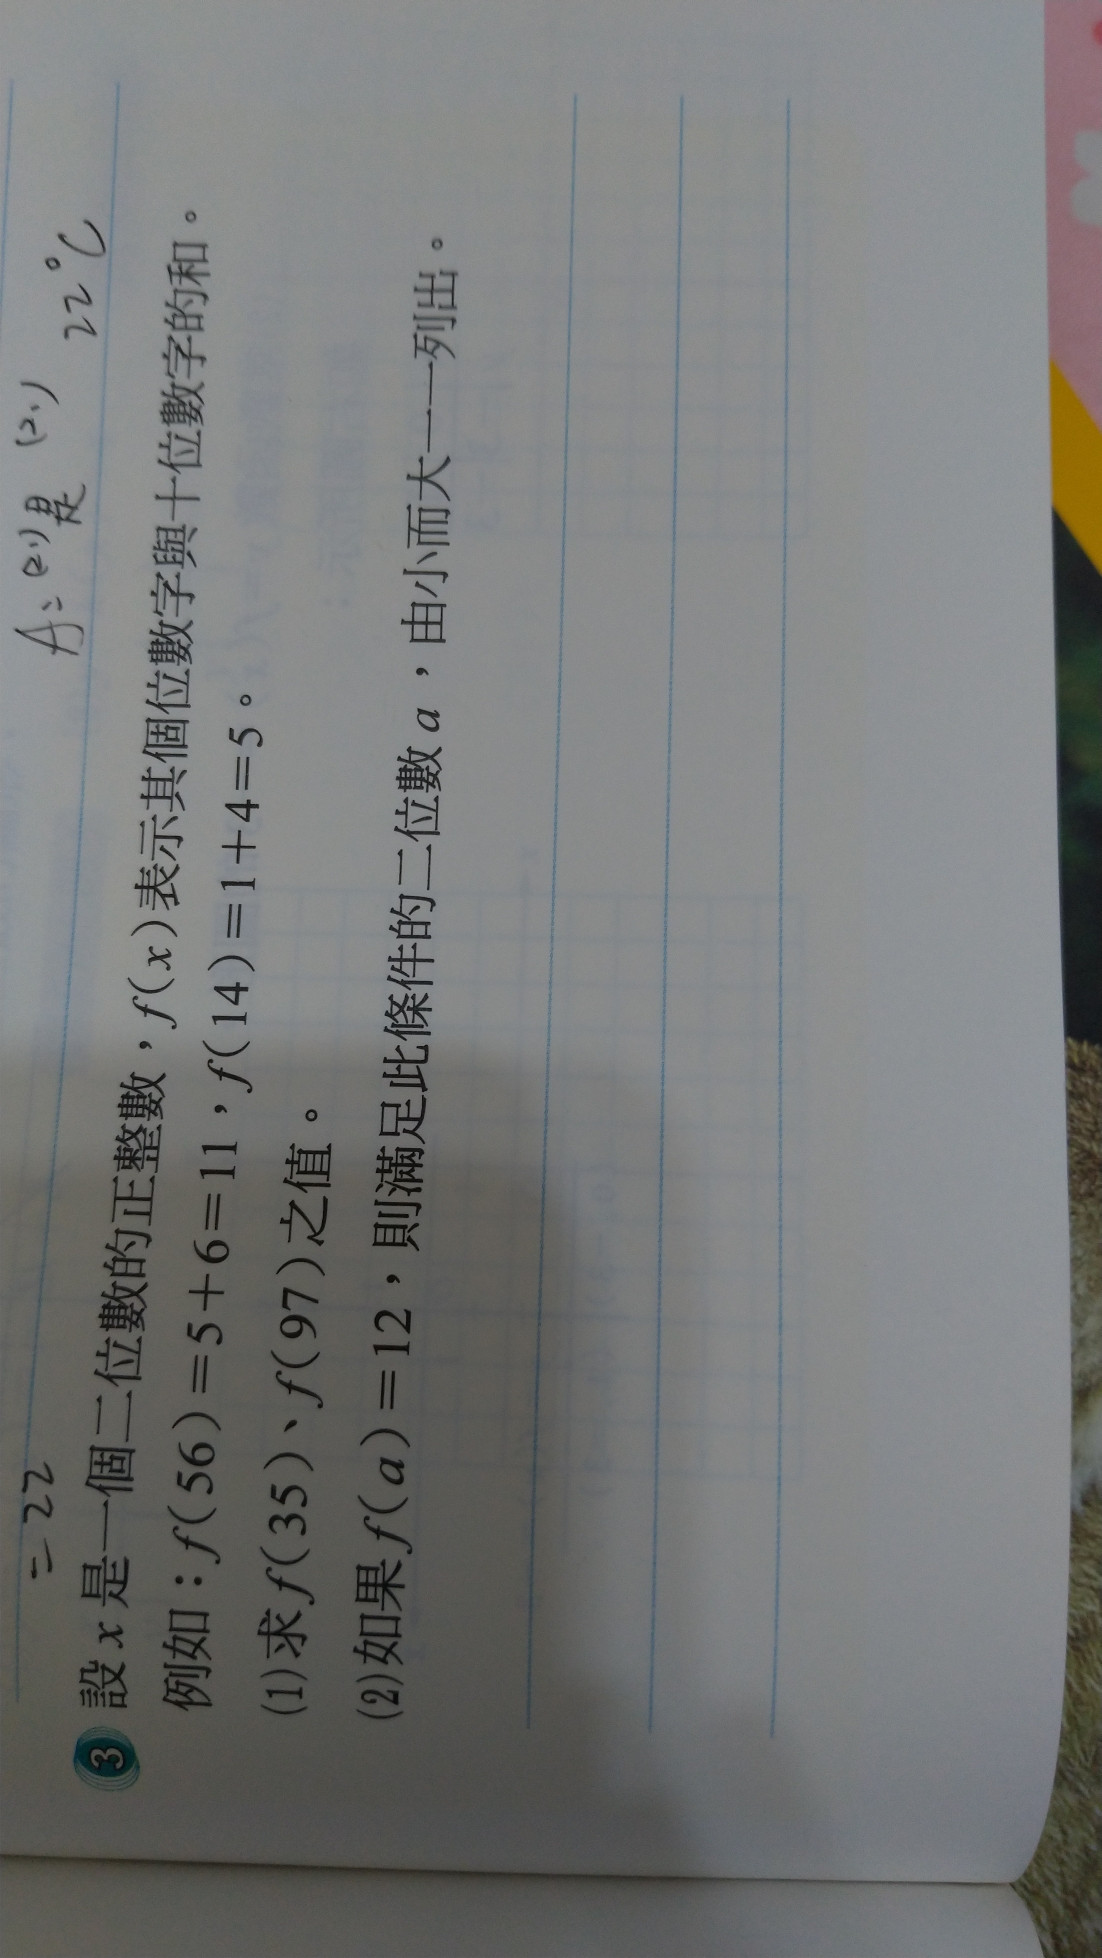 =22
A:(2.1)是(2.1) 22°C
3 設 x 是一個二位數的正整數，f(x)表示其個位數字與十位數字的和。
例如：f(56)=5+6=11，f(14)=1+4=5。
(1)求 f(35)、f(97)之值。
(2)如果 f(a)=12，則滿足此條件的二位數 a ，由小而大一一列出。